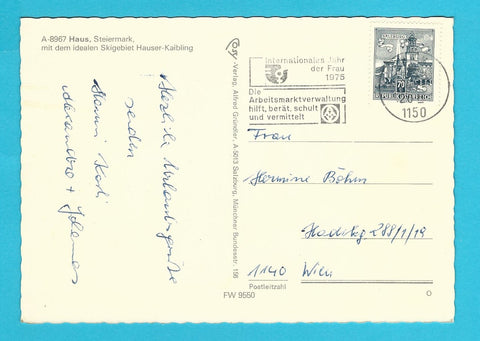 A-8967 Haus, Steiermark,
mit dem idealen Skigebiet Hauser-Kaibling
Herzliche Urlaubsgrüße
senden
Mammi Karli
Alexandra + Johannes
Cosy-Verlag, Alfred Gründler, A-5013 Salzburg, Münchner Bundesstr. 156
FW 9550
Internationales Jahr
der Frau
1975
Die
Arbeitsmarktverwaltung
hilft, berät, schult
und vermittelt
1150
REPUBLIK ÖSTERREICH
Frau
Hermine Böhm
1140 Wien
Postleitzahl